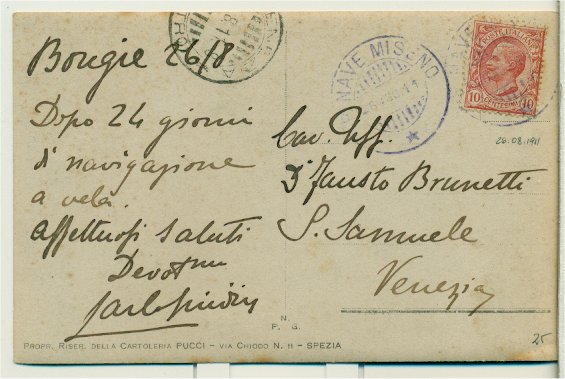 Bougie 26/8
Dopo 24 giorni
di navigazione
a vela.
affettuosi saluti
Devotmo
NAVE MISENO
POSTE ITALIANE
10 CENTESIMI 10
26.08.1911
Cav. Uff.
Dr Fausto Brunetti
S. Samuele
Venezia
N.
P. G.
PROPR. RISER. DELLA CARTOLERIA PUCCI – VIA CHIODO N. 11 – SPEZIA
25